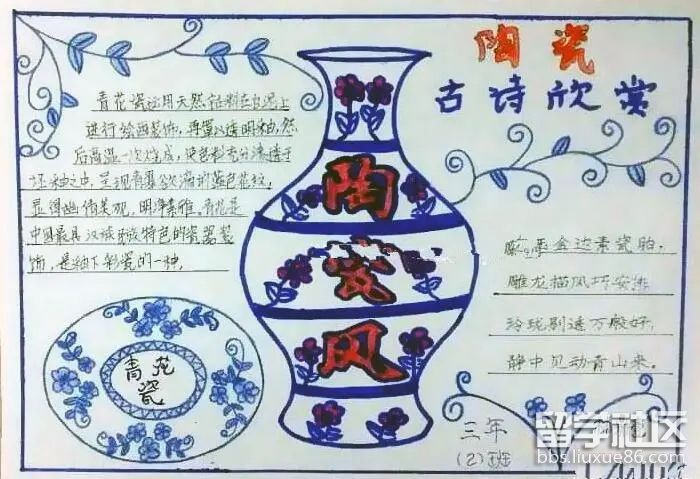 陶瓷
古诗欣赏
青花瓷
进行绘画装饰，再罩以透明釉，然
后高温一次烧成，使色料充分渗透于
坯釉之中，呈现青翠欲滴的蓝色花纹，
显得幽倩美观，明净素雅。青花是
中国最具汉族民族特色的瓷器装
饰，是釉下彩瓷的一种，
陶瓷风
金边素瓷胎，
雕龙描凤巧安排
玲珑剔透万般好，
静中见动青山来。
青花
瓷
三年
(2)班
留学社区
bbs.liuxue86.com